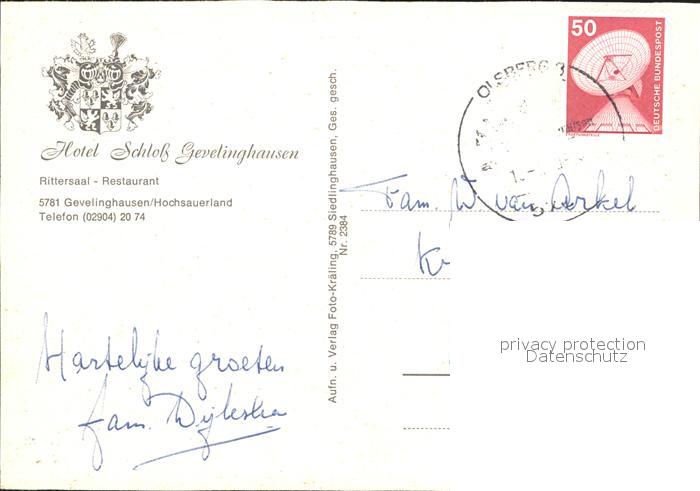 Hotel Schloß Gevelinghausen
Rittersaal - Restaurant
5781 Gevelinghausen/Hochsauerland
Telefon (02904) 20 74
Hartelijke groeten
fam. Dijkstra
Aufn. u. Verlag Foto-Kräling, 5789 Siedlinghausen, Ges. gesch.
Nr. 2384
50
DEUTSCHE BUNDESPOST
OLSBERG
Fam. W van Arkel
privacy protection
Datenschutz